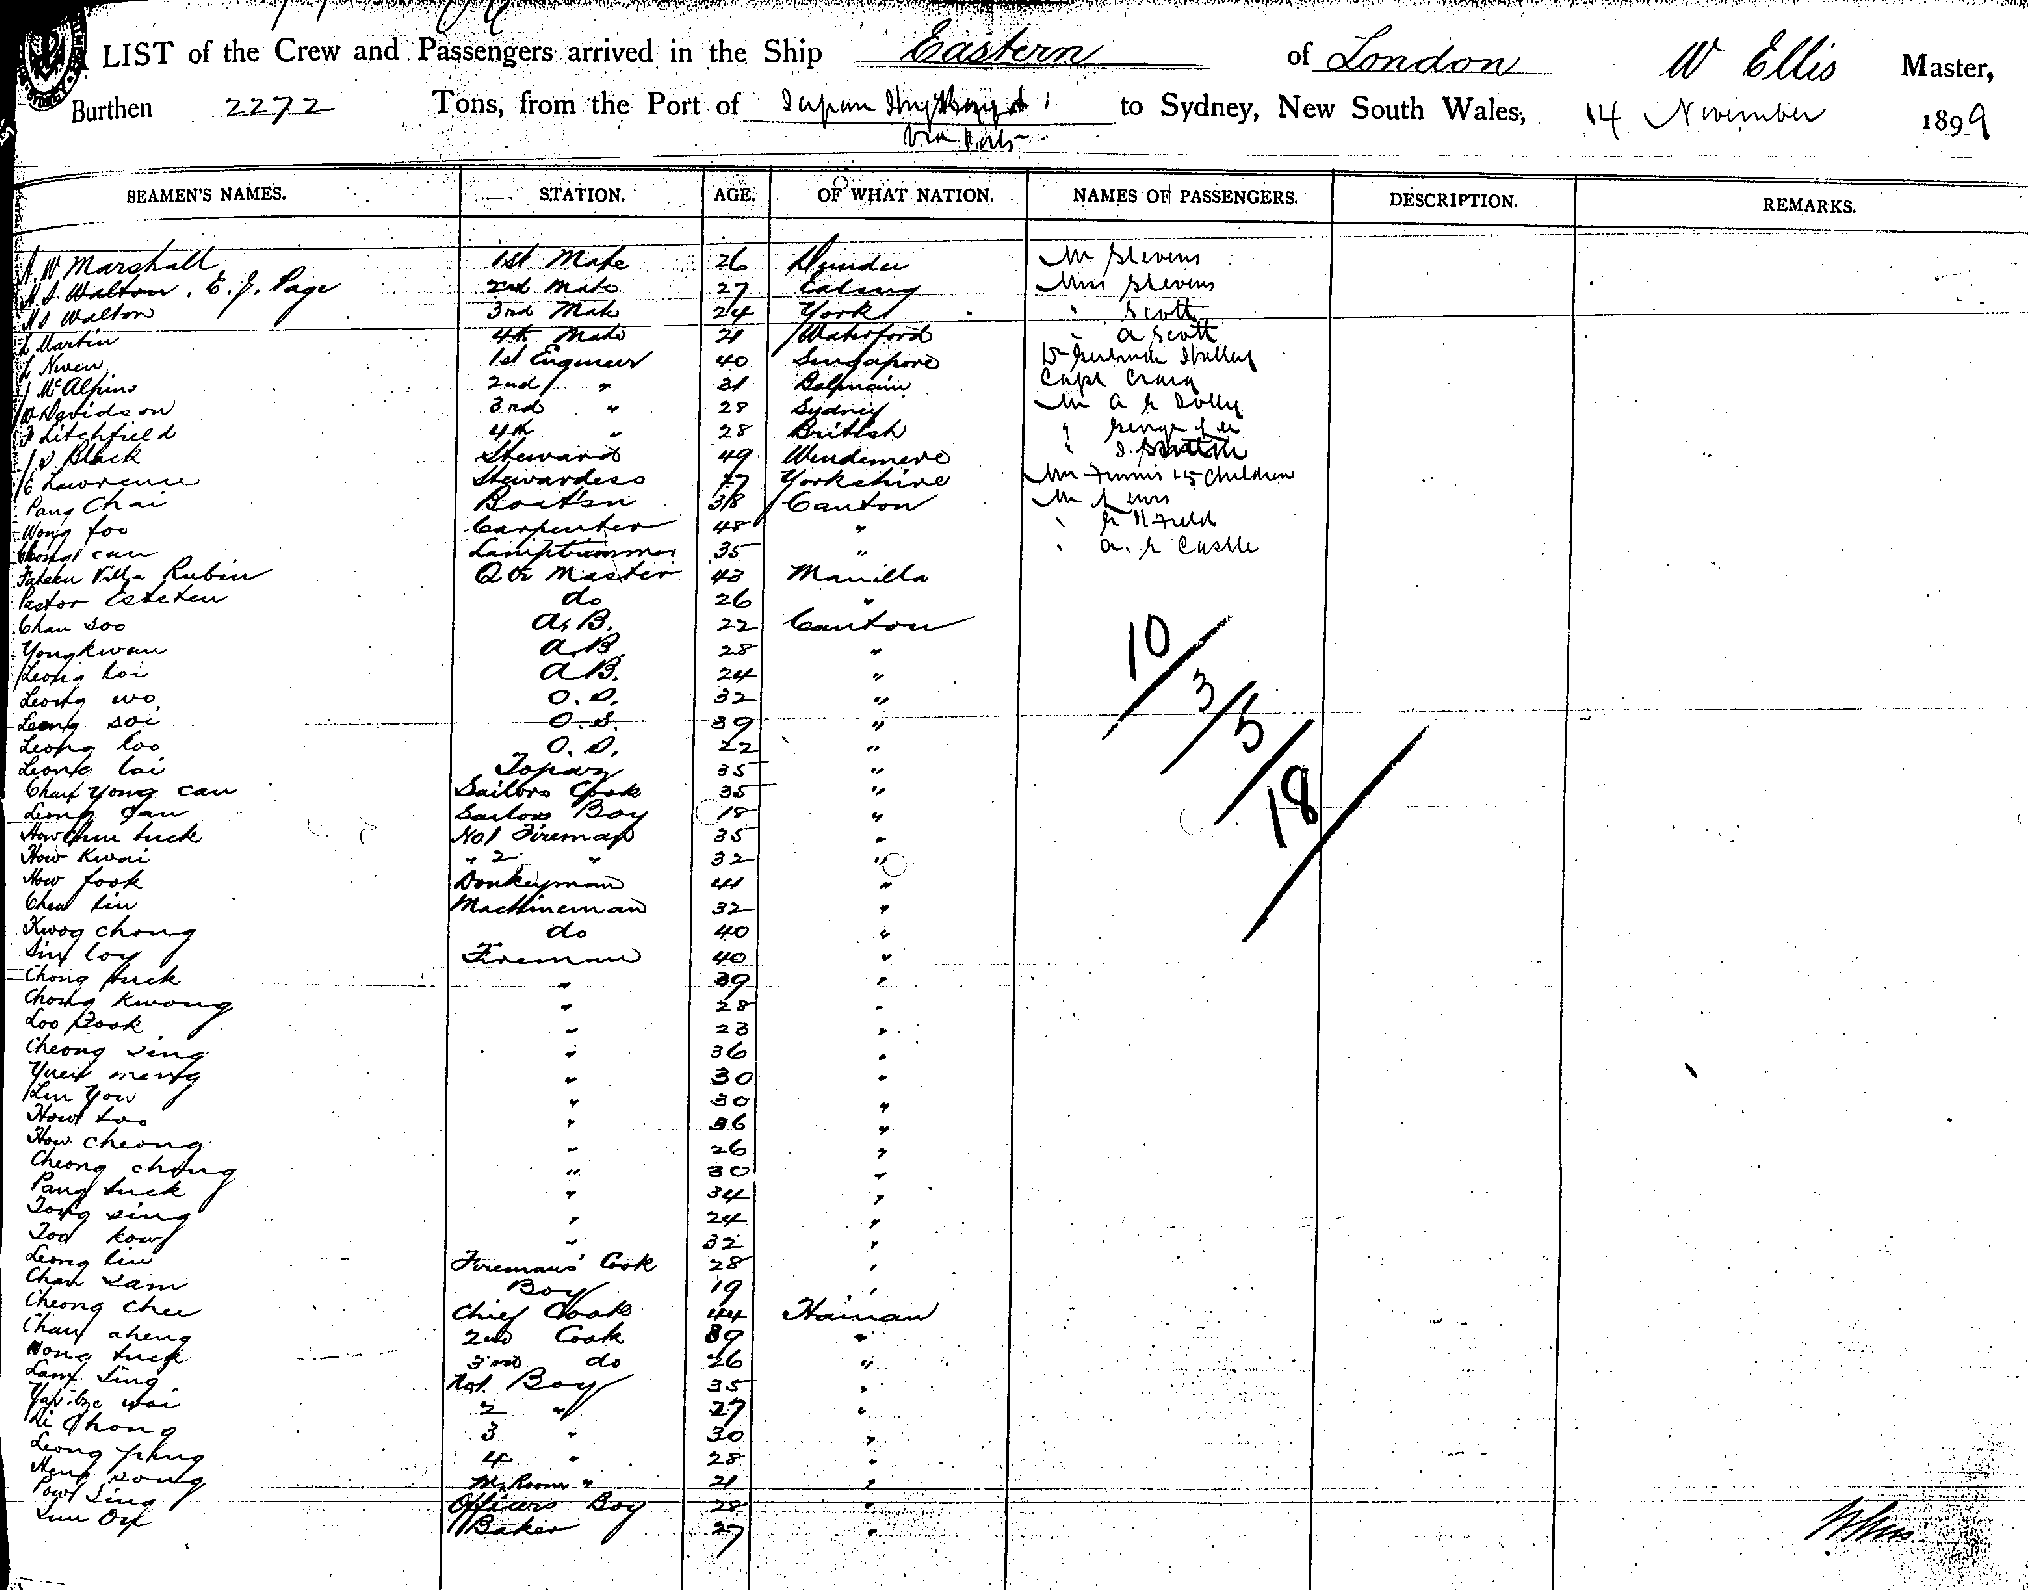 LIST of the Crew and Passengers arrived in the Ship Eastern of London W Ellis Master,
Burthen 2272 Tons, from the Port of Japan Hong Kong to Sydney, New South Wales, 14 November 1899
Via Ports
SEAMEN'S NAMES. STATION. AGE. OF WHAT NATION. NAMES OF PASSENGERS. DESCRIPTION. REMARKS.
W Marshall 1st Mate 26 Dundee Mr Stevens
Walton. E. J. Page 2nd Mate 27 Ealing Miss Stevens
Walton 3rd Mate 24 York " Scott
Martin 4th Mate 21 Waterford " A Scott
Niven 1st Engineer 40 Singapore
McAlpine 2nd " 31 Balmain Capt Craig
Davidson 3rd " 28 Sydney Mr A
Litchfield 4th " 28 British " George
Black Steward 49 Windemere "
E Lawrence Stewardess 47 Yorkshire 5 Children
Pang Chai Boatsn 38 Canton Mr
Wong foo Carpenter 48 " " Field
can Lamptrimmer 35 " " A. Castle
Villa Rubin Qtr Master 43 Manilla
Pastor Esteten do 26 "
Chan Soo A.B. 22 Canton
Yong Kwan A.B. 28 "
Leong loi A.B. 24 "
Leong wo O.S. 32 "
Leong soi O.S. 39 "
Leong loo O.S. 22 "
Leong lai Topaz 35 "
Chan Yong can Sailors Cook 35 "
Leong Sailors Boy 18 "
How Chun tuck No 1 Fireman 35 "
How Kwai " 2 " 32 "
How fook Donkeyman 41 "
Chew lin Machineman 32 "
Kwog chong do 40 "
Sin loy Fireman 40 "
Chong tuck " 39 "
Chong Kwong " 28 "
Loo Pook " 23 "
Cheong Sing " 36 "
Yuen meng " 30 "
Lin Yow " 30 "
How too " 36 "
How cheong " 26 "
Cheong chong " 30 "
Pang tuck " 34 "
Tong Sing " 24 "
Too kow " 32 "
Leong lin Firemans' Cook 28 "
Chan Sam Boy 19 "
Cheong Chee Chief Cook 44 Hainan
Chan aheng 2nd Cook 39 "
Wong tuck 3rd do 26 "
Lam Sing No1. Boy 35 "
Yap tze wai 2 " 27 "
Li Chong 3 " 30 "
Leong 4 " 28 "
Heng song Ms Room " 21 "
Pow Sing Officers Boy 28 "
Baker 27 "
10/3/5/18/
W Ellis